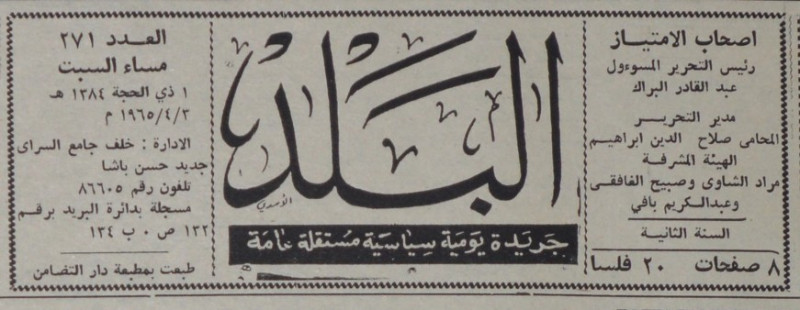 اصحاب الامتيـاز
رئيس التحرير المسوءول
عبد القادر البراك
مدير التحريـر
المحامى صلاح الدين ابراهيم
الهيئة المشرفة
مراد الشاوى وصبيح الغافقى
وعبدالكريم بافي
السنة الثانية
٨ صفحات ٢٠ فلسا
البلد
جريدة يومية سياسية مستقلة عامة
العـدد ٢٧١
مساء السبت
١ ذي الحجة ١٣٨٤ هـ
١٩٦٥/٤/٣ م
الادارة : خلف جامع السراى
جديد حسن باشا
تلفون رقم ٨٦٦٠٥
مسجلة بدائرة البريد برقم
١٣٢ ص ٠ ب ١٣٤
طبعت بمطبعة دار التضامن